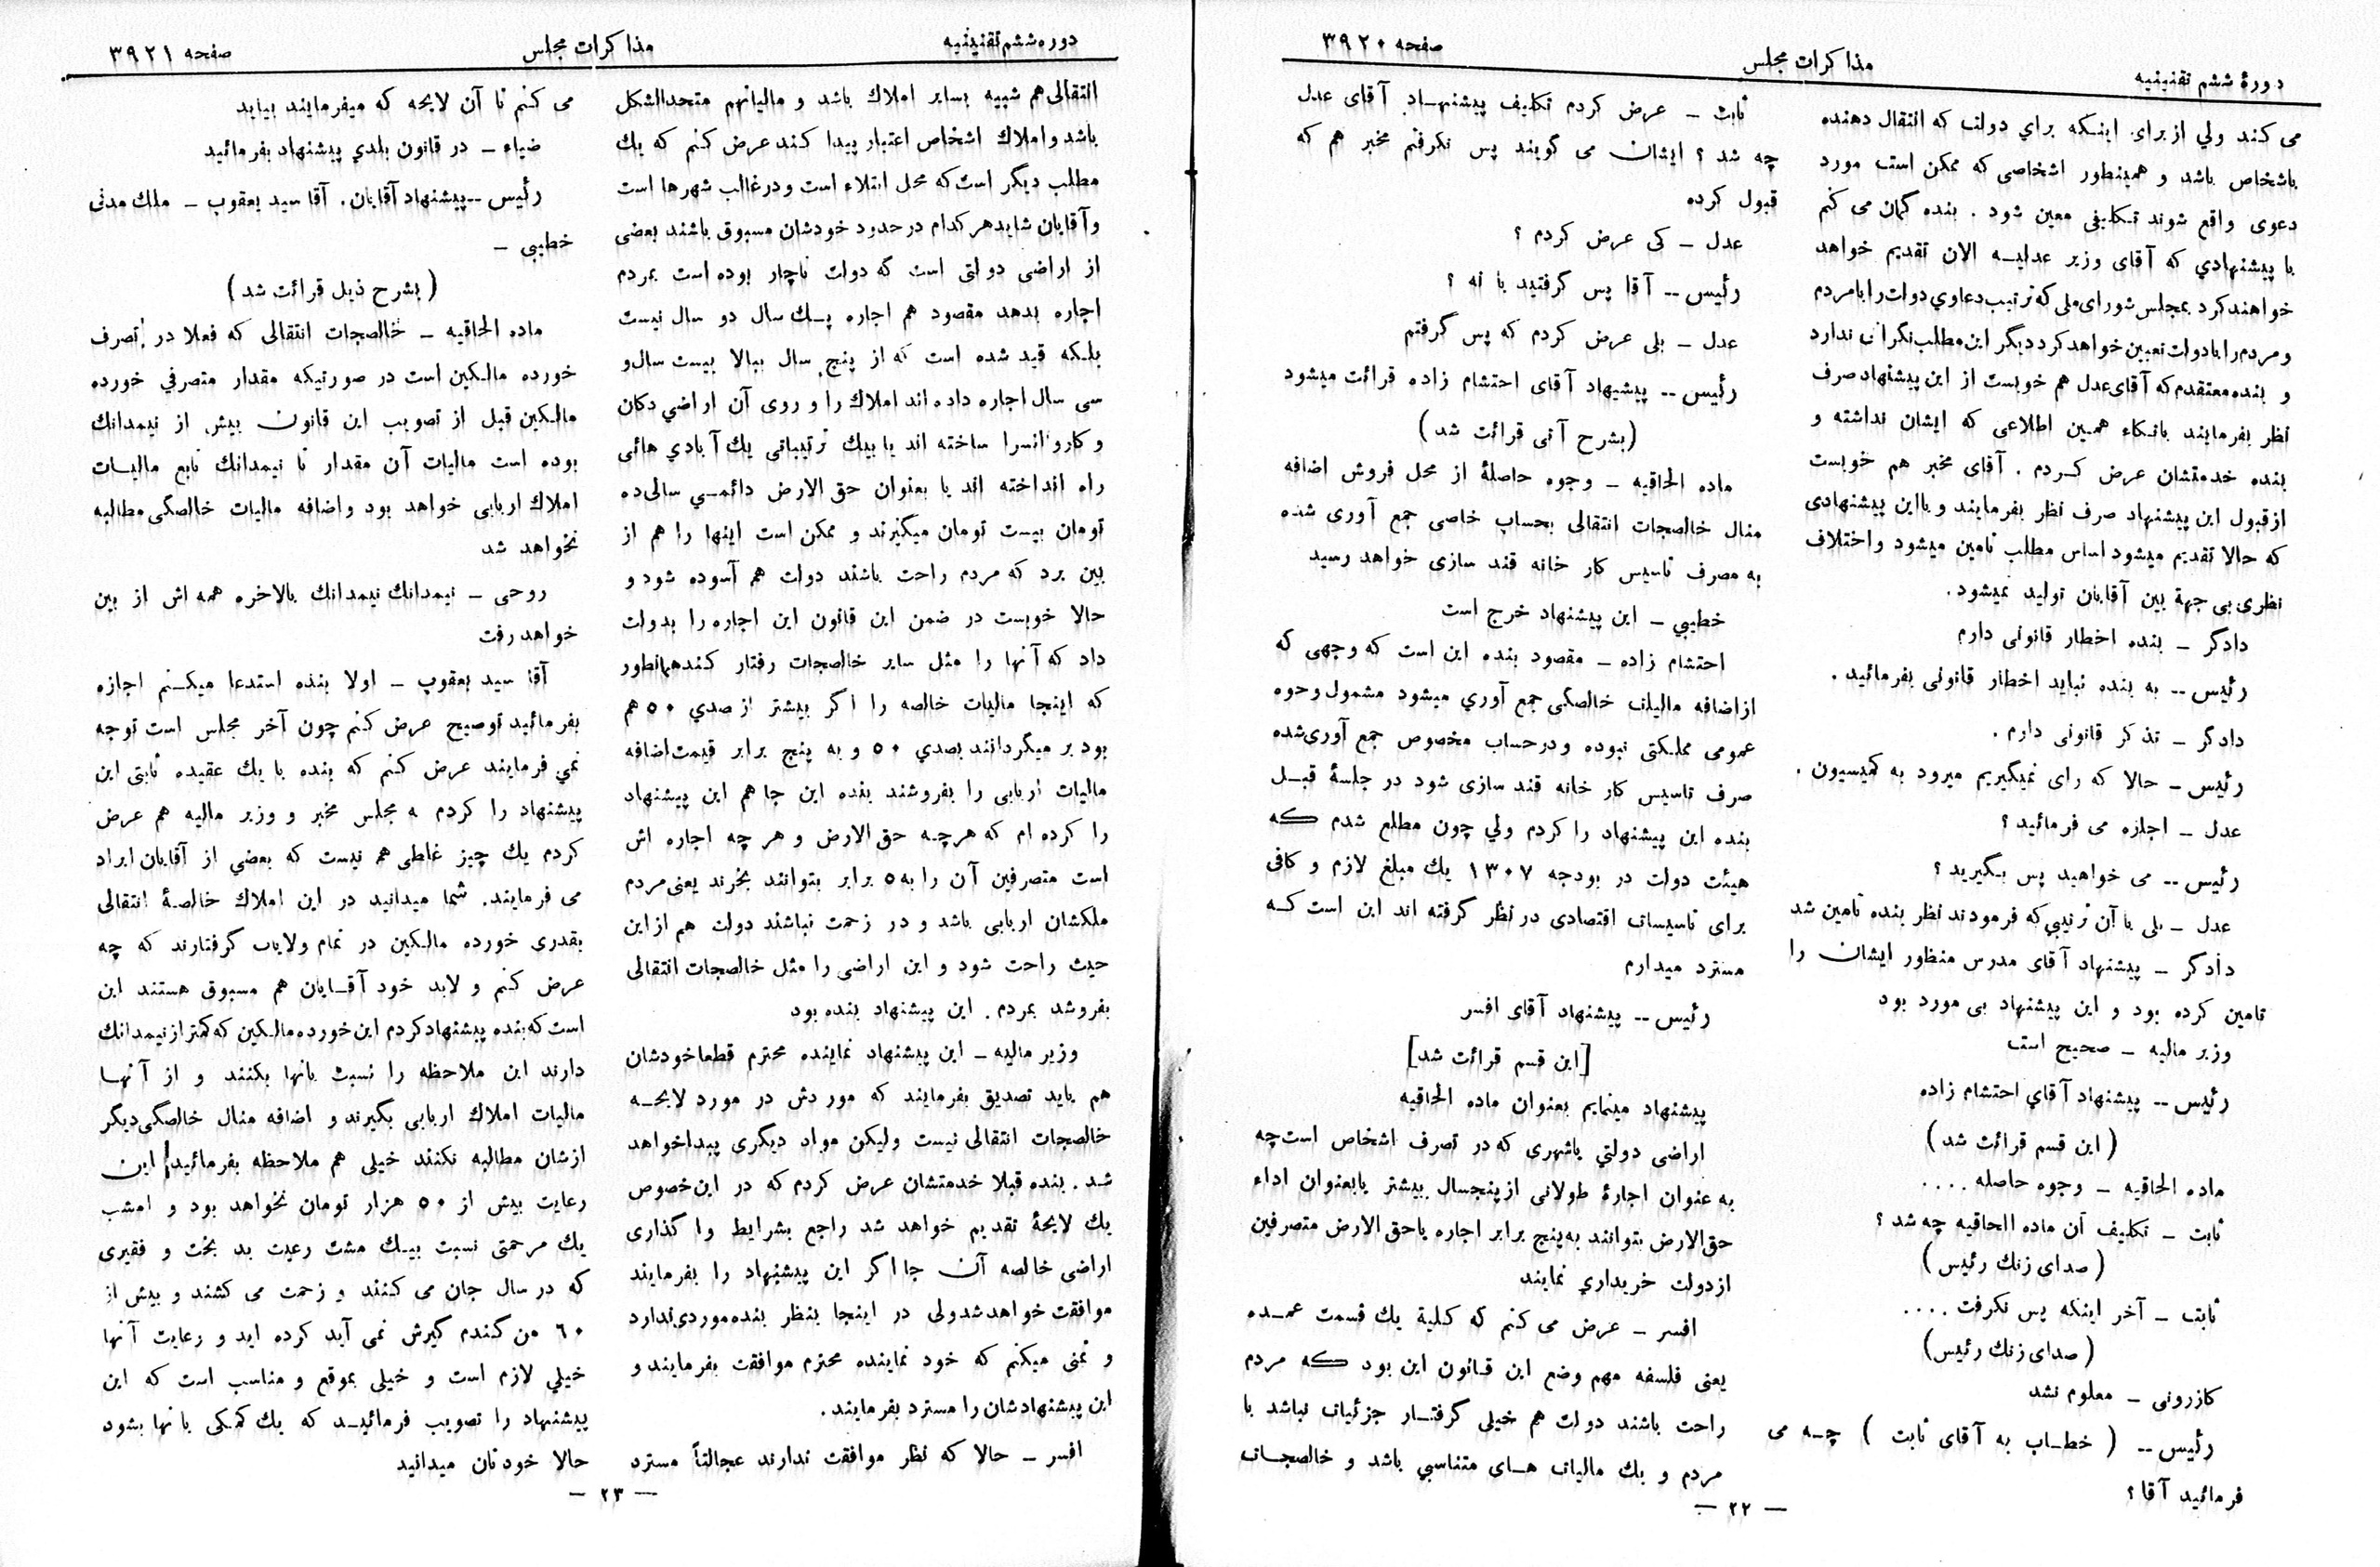 دورهٔ ششم تقنینیه
مذاکرات مجلس
صفحه ۳۹۲۰
می کند ولی از برای اینکه برای دولت که انتقال دهنده
باشخاص باشد و همینطور اشخاصی که ممکن است مورد
دعوی واقع شوند تکلیفی معین شود . بنده گمان می کنم
با پیشنهادی که آقای وزیر عدلیه الان تقدیم خواهد
خواهند کرد بمجلس شورای ملی که ترتیب دعاوی دولت را با مردم
و مردم را با دولت تعیین خواهد کرد دیگر این مطلب نگرانی ندارد
و بنده معتقدم که آقای عدل هم خوبست از این پیشنهاد صرف
نظر بفرمایند باتکاء همین اطلاعی که ایشان نداشته و
بنده خدمتشان عرض کردم . آقای مخبر هم خوبست
از قبول این پیشنهاد صرف نظر بفرمایند و با این پیشنهادی
که حالا تقدیم میشود اساس مطلب تامین میشود و اختلاف
نظری بی جهة بین آقایان تولید نمیشود.
دادگر ـ بنده اخطار قانونی دارم
رئیس -- به بنده نباید اخطار قانونی بفرمائید .
دادگر ـ تذکر قانونی دارم .
رئیس ـ حالا که رای نمیگیریم میرود به کمیسیون .
عدل ـ اجازه می فرمائید ؟
رئیس -- می خواهید پس بگیرید ؟
عدل ـ بلی با آن ترتیبی که فرمودند نظر بنده تامین شد
دادگر ـ پیشنهاد آقای مدرس منظور ایشان را
تامین کرده بود و این پیشنهاد بی مورد بود
وزیر مالیه ـ صحیح است
رئیس -- پیشنهاد آقای احتشام زاده
( این قسم قرائت شد )
ماده الحاقیه ـ وجوه حاصله ....
ثابت ـ تکلیف آن ماده الحاقیه چه شد ؟
( صدای زنك رئیس )
ثابت ـ آخر اینکه پس نگرفت ....
( صدای زنك رئیس )
کازرونی ـ معلوم نشد
رئیس -- ( خطاب به آقای ثابت ) چه می
فرمائید آقا ؟
ثابت ـ عرض کردم تکلیف پیشنهاد آقای عدل
چه شد ؟ ایشان می گویند پس نگرفتم مخبر هم که
قبول کرده
عدل ـ کی عرض کردم ؟
رئیس -- آقا پس گرفتید یا نه ؟
عدل ـ بلی عرض کردم که پس گرفتم
رئیس -- پیشیهاد آقای احتشام زاده قرائت میشود
(بشرح آنی قرائت شد )
ماده الحاقیه ـ وجوه حاصلهٔ از محل فروش اضافه
منال خالصجات انتقالی بحساب خاصی جمع آوری شده
به مصرف تاسیس کار خانه قند سازی خواهد رسید
خطیبی ـ این پیشنهاد خرج است
احتشام زاده ـ مقصود بنده این است که وجهی که
از اضافه مالیات خالصگی جمع آوری میشود مشمول وحوه
عمومی مملکتی نبوده و در حساب مخصوص جمع آوری شده
صرف تاسیس کار خانه قند سازی شود در جلسهٔ قبل
بنده این پیشنهاد را کردم ولی چون مطلع شدم که
هیئت دولت در بودجه ۱۳۰۷ یك مبلغ لازم و کافی
برای تاسیسات اقتصادی در نظر گرفته اند این است که
مسترد میدارم
رئیس -- پیشنهاد آقای افسر
[این قسم قرائت شد]
پیشنهاد مینمایم بعنوان ماده الحاقیه
اراضی دولتی یاشهری که در تصرف اشخاص است چه
به عنوان اجارهٔ طولانی از پنجسال بیشتر یا بعنوان اداء
حق الارض بتوانند به پنج برابر اجاره یا حق الارض متصرفین
از دولت خریداری نمایند
افسر ـ عرض می کنم که کلیة یك قسمت عمده
یعنی فلسفه مهم وضع این قانون این بود که مردم
راحت باشند دولت هم خیلی گرفتار جزئیات نباشد با
مردم و یك مالیات های متناسبی باشد و خالصجات
— ۲۲ —
دوره ششم تقنینیه
مذاکرات مجلس
صفحه ۳۹۲۱
انتقالی هم شبیه بسایر املاك باشد و مالیاتهم متحدالشکل
باشد و املاك اشخاص اعتبار پیدا کند عرض کنم که یك
مطلب دیگر است که محل ابتلاء است و در غالب شهرها است
و آقایان شاید هر کدام در حدود خودشان مسبوق باشند بعضی
از اراضی دولتی است که دولت ناچار بوده است بمردم
اجاره بدهد مقصود هم اجاره یك سال دو سال نیست
بلکه قید شده است که از پنج سال ببالا بیست سال و
سی سال اجاره داده اند املاك را و روی آن اراضی دکان
و کاروانسرا ساخته اند یا بیك ترتیباتی یك آبادی هائی
راه انداخته اند یا بعنوان حق الارض دائمی سالی ده
تومان بیست تومان میگیرند و ممکن است اینها را هم از
بین برد که مردم راحت باشند دولت هم آسوده شود و
حالا خوبست در ضمن این قانون این اجاره را بدولت
داد که آنها را مثل سایر خالصجات رفتار کند همانطور
که اینجا مالیات خالصه را اگر بیشتر از صدی ۵۰ هم
بود بر میگردانند بصدی ۵۰ و به پنج برابر قیمت اضافه
مالیات اربابی را بفروشند بنده این جا هم این پیشنهاد
را کرده ام که هر چه حق الارض و هر چه اجاره اش
است متصرفین آن را به ۵ برابر بتوانند بخرند یعنی مردم
ملکشان اربابی باشد و در زحمت نباشند دولت هم از این
حیث راحت شود و این اراضی را مثل خالصجات انتقالی
بفروشد بمردم . این پیشنهاد بنده بود
وزیر مالیه ـ این پیشنهاد نماینده محترم قطعا خودشان
هم باید تصدیق بفرمایند که موردش در مورد لایحه
خالصجات انتقالی نیست ولیکن مواد دیگری پیدا خواهد
شد . بنده قبلا خدمتشان عرض کردم که در این خصوص
یك لایحهٔ تقدیم خواهد شد راجع بشرایط واگذاری
اراضی خالصه آن جا اگر این پیشنهاد را بفرمایند
موافقت خواهد شد ولی در اینجا بنظر بنده موردی ندارد
و تمنی میکنم که خود نماینده محترم موافقت بفرمایند و
این پیشنهادشان را مسترد بفرمایند .
افسر ـ حالا که نظر موافقت ندارند عجالتاً مسترد
می کنم تا آن لایحه که میفرمایند بیاید
ضیاء ـ در قانون بلدی پیشنهاد بفرمائید
رئیس -- پیشنهاد آقایان . آقا سید یعقوب ـ ملك مدنی
خطیبی ـ
( بشرح ذیل قرائت شد )
ماده الحاقیه ـ خالصجات انتقالی که فعلا در تصرف
خورده مالکین است در صورتیکه مقدار متصرفی خورده
مالکین قبل از تصویب این قانون بیش از نیمدانك
بوده است مالیات آن مقدار تا نیمدانك تابع مالیات
املاك اربابی خواهد بود و اضافه مالیات خالصگی مطالبه
نخواهد شد
روحی ـ نیمدانك نیمدانك بالاخره همه اش از بین
خواهد رفت
آقا سید یعقوب ـ اولا بنده استدعا میکنم اجازه
بفرمائید توصیح عرض کنم چون آخر مجلس است توجه
نمی فرمایند عرض کنم که بنده با یك عقیده ثابتی این
پیشنهاد را کردم به مجلس مخبر و وزیر مالیه هم عرض
کردم یك چیز غاطی هم نیست که بعضی از آقایان ایراد
می فرمایند. شما میدانید در این املاك خالصهٔ انتقالی
بقدری خورده مالکین در تمام ولایات گرفتارند که چه
عرض کنم و لابد خود آقایان هم مسبوق هستند این
است که بنده پیشنهاد کردم این خورده مالکین که کمتر از نیمدانك
دارند این ملاحظه را نسبت بانها بکنند و از آنها
مالیات املاك اربابی بگیرند و اضافه منال خالصگی دیگر
ازشان مطالبه نکنند خیلی هم ملاحظه بفرمائید این
رعایت بیش از ۵۰ هزار تومان نخواهد بود و امشب
یك مرحمتی نسبت بیك مشت رعیت بد بخت و فقیری
که در سال جان می کنند و زحمت می کشند و بیش از
۶۰ من گندم گیرش نمی آید کرده اید و رعایت آنها
خیلی لازم است و خیلی بموقع و مناسب است که این
پیشنهاد را تصویب فرمائید که یك کمکی بانها بشود
حالا خودتان میدانید
— ۲۳ —